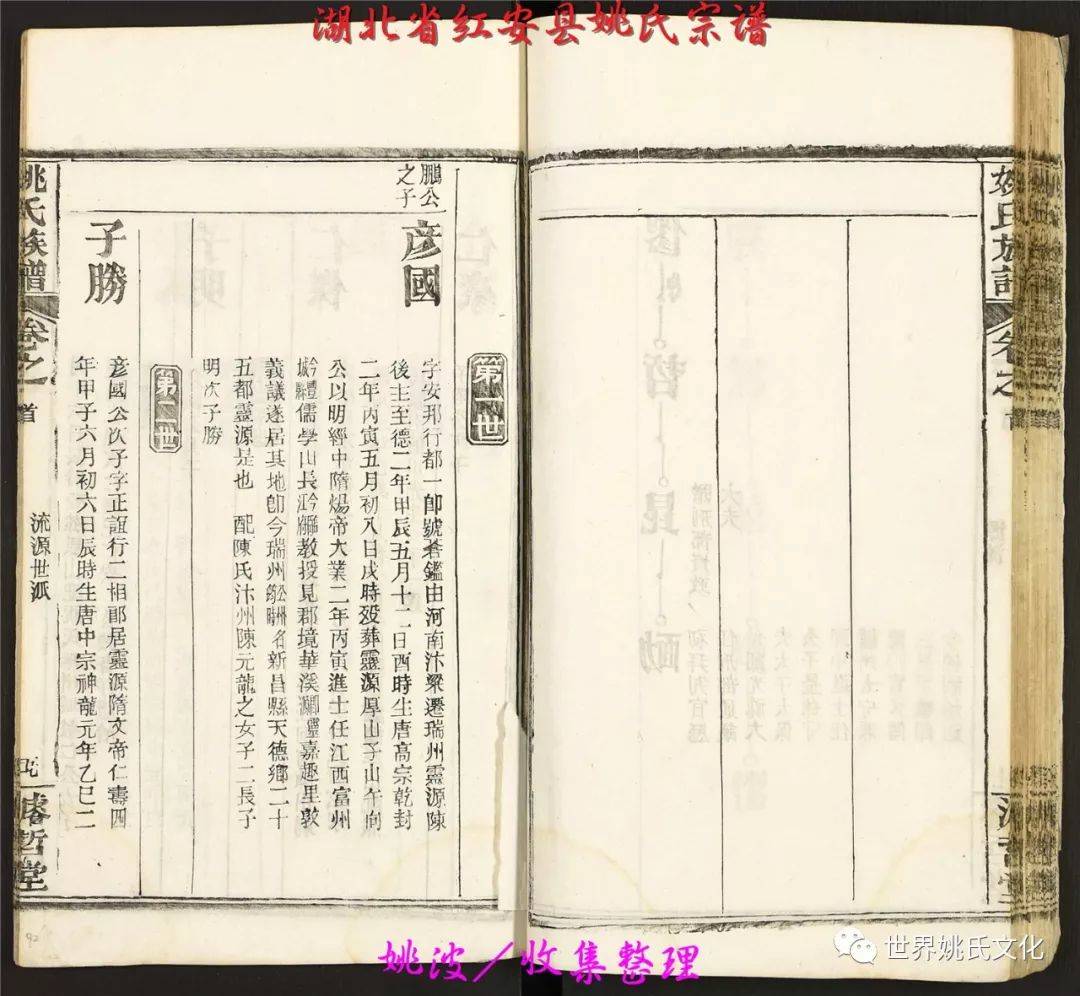 湖北省红安县姚氏宗谱
第一世
鵬公
之子
彦國
字安邦行都一郎號蒼鑑由河南汴梁遷瑞州靈源陳
後主至德二年甲辰五月十二日酉時生唐高宗乾封
二年丙寅五月初八日戌時歿葬靈源厚山子山午向
公以明經中隋煬帝大業二年丙寅進士任江西富州
儒學山長
教授見郡境華溪
嘉趣里敦
義議遂居其地卽今瑞州
名新昌縣天德鄉二十
五都靈源是也 配陳氏汴州陳元龍之女子二長子
明次子勝
第二世
子勝
彦國公次子字正誼行二相郎居靈源隋文帝仁壽四
年甲子六月初六日辰時生唐中宗神龍元年乙巳二
姚氏族譜 卷之首
流源世派
濬哲堂
姚波／收集整理
世界姚氏文化